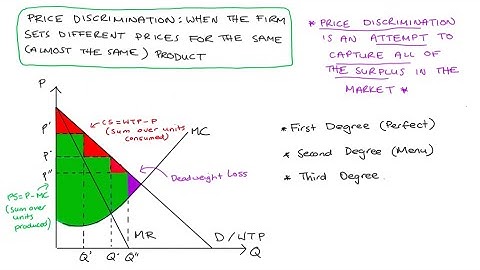 PRICE DISCRIMINATION: WHEN THE FIRM
SETS DIFFERENT PRICES FOR THE SAME
(ALMOST THE SAME) PRODUCT
* PRICE DISCRIMINATION
IS AN ATTEMPT TO
CAPTURE ALL OF
THE SURPLUS IN THE
MARKET *
P
CS = WTP - P
(sum over units
consumed)
MC
P'
P*
P"
Deadweight Loss
PS = P - MC
(sum over
units
produced)
* First Degree (Perfect)
* Second Degree (Menu)
* Third Degree.
Q' Q* Q"
MR
D/WTP
Q